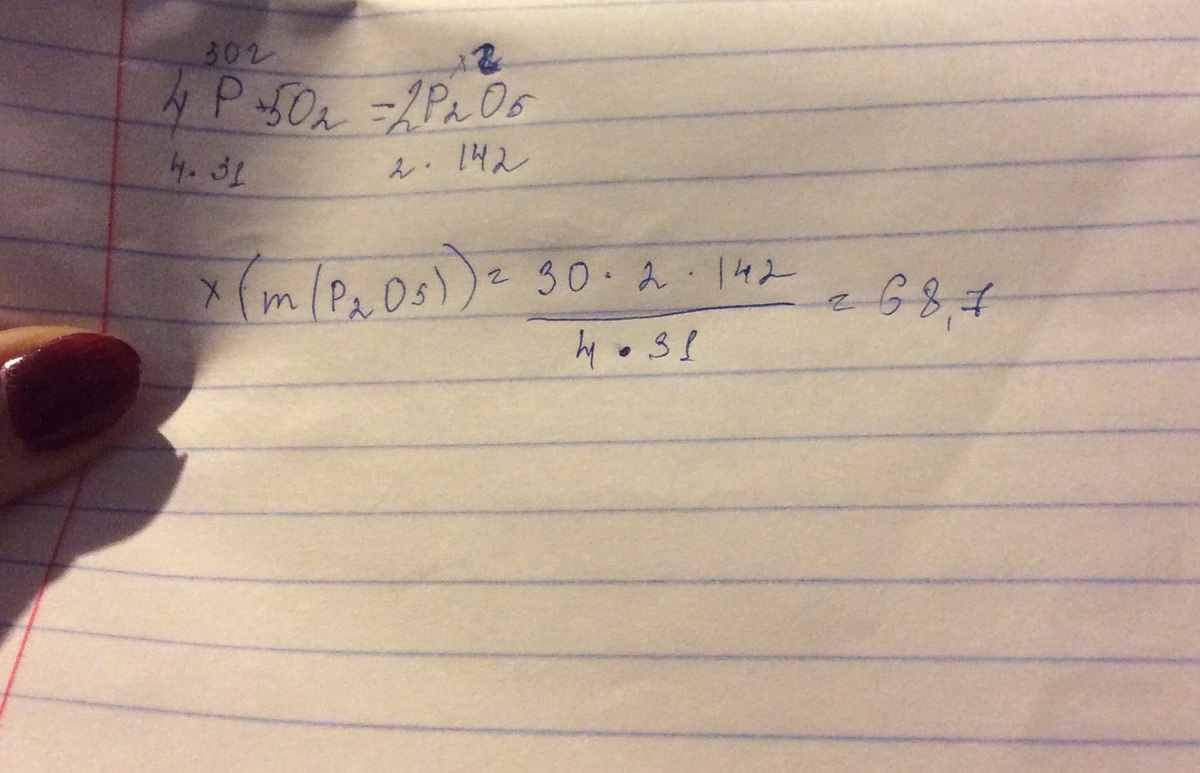 30г x г
4P + 5O2 = 2P2O5
4 · 31 2 · 142
x (m(P2O5)) = 30 · 2 · 142 / 4 · 31 = 68,7